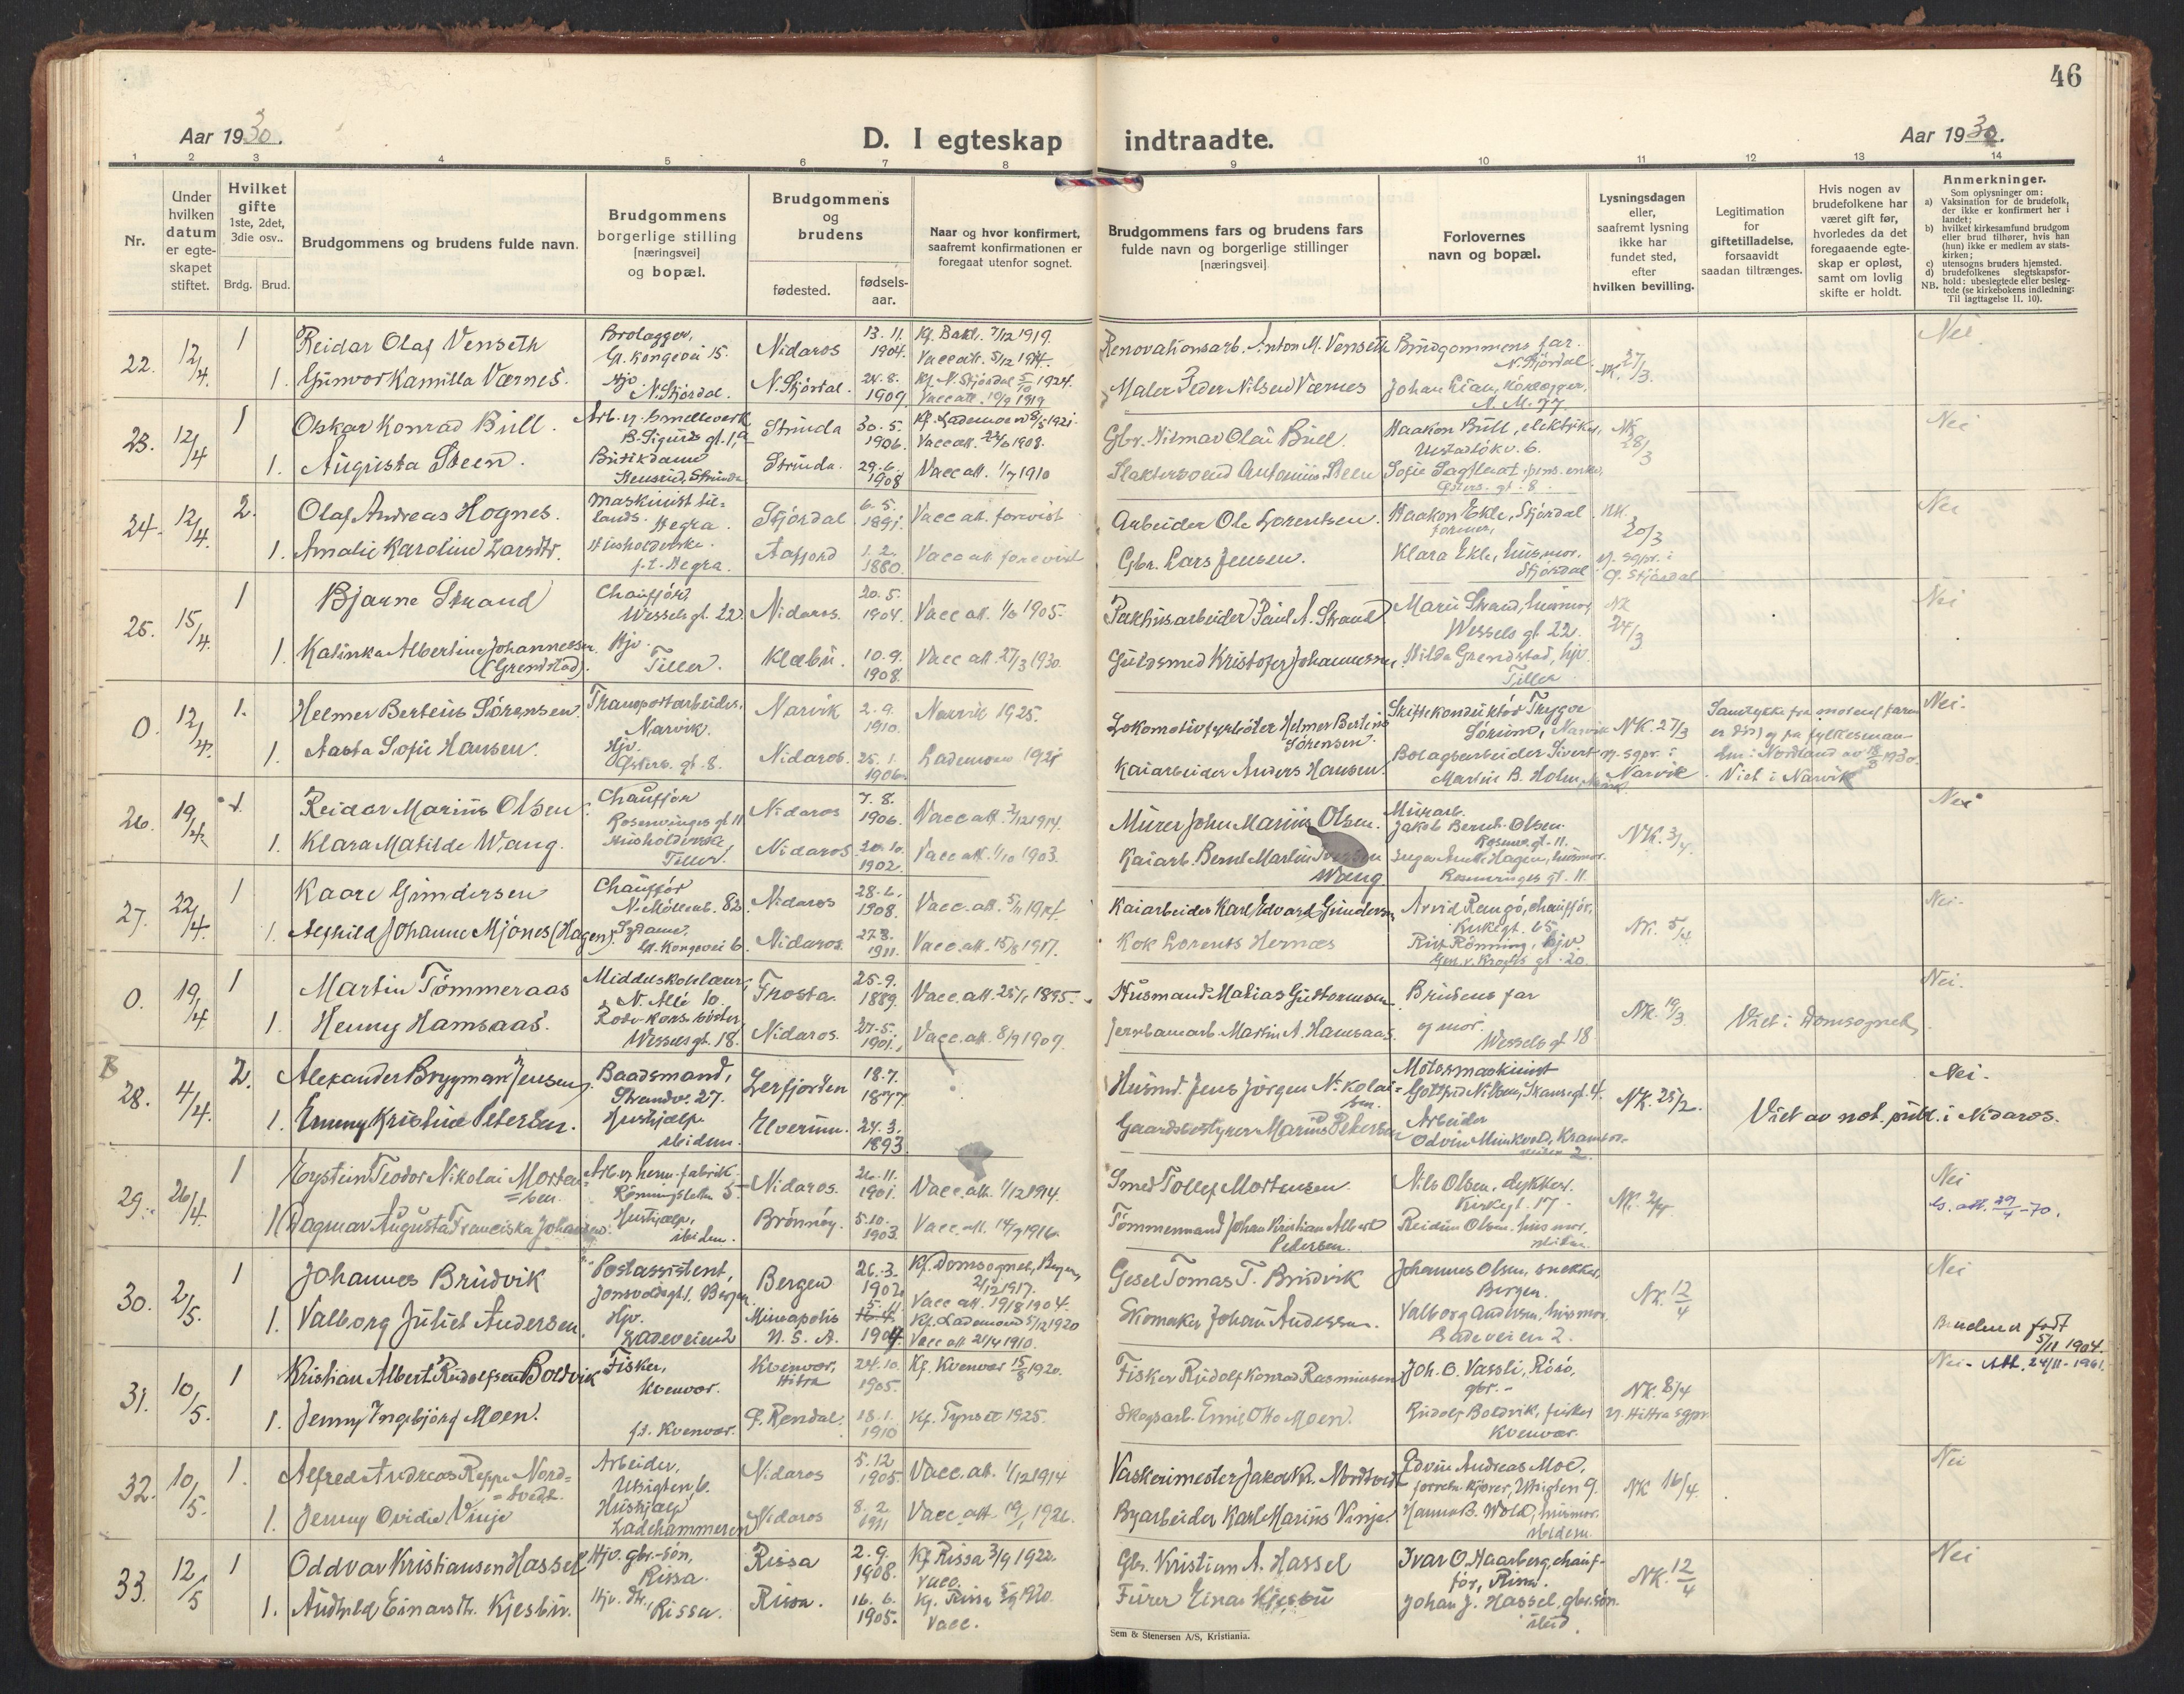 46
Aar 1930.
D. I egteskap indtraadte.
Aar 1930.
1 2 3 4 5 6 7 8 9 10 11 12 13 14
Nr.
Under hvilken datum er egteskapet stiftet.
Hvilket gifte 1ste, 2det, 3die osv..
Brdg. Brud.
Brudgommens og brudens fulde navn.
Brudgommens borgerlige stilling [næringsvei] og bopæl.
Brudgommens og brudens
fødested.
fødsels-aar.
Naar og hvor konfirmert, saafremt konfirmationen er foregaat utenfor sognet.
Brudgommens fars og brudens fars fulde navn og borgerlige stillinger [næringsvei]
Forlovernes navn og bopæl.
Lysningsdagen eller, saafremt lysning ikke har fundet sted, efter hvilken bevilling.
Legitimation for giftetilladelse, forsaavidt saadan tiltrænges.
Hvis nogen av brudefolkene har været gift før, hvorledes da det foregaaende egteskap er opløst, samt om lovlig skifte er holdt.
Anmerkninger.
Som oplysninger om:
a) Vaksination for de brudefolk, der ikke er konfirmert her i landet;
b) hvilket kirkesamfund brudgom eller brud tilhører, hvis han (hun) ikke er medlem av statskirken;
c) utensogns bruders hjemsted.
d) brudefolkenes slegtskapsforhold: ubeslegtede eller beslegtede (se kirkebokens indledning:
NB. Til lagttagelse II. 10).
22. 12/4. 1 Reidar Olaf Venseth Brolægger, Gl. kongevei 15. Nidaros 13. 11. 1904. Kf. Bakl. 7/12 1919. Vacc att. 5/12 1914. Renovationsarb. Anton M. Venseth Brudgommens far. N. Stjørdal. NK. 27/3. Nei.
1. Gunvor Kamilla Værnes. Hjv. N. Stjørdal. N. Stjørdal. 24. 8. 1909. Kf. N. Stjørdal 5/10 1924. Vacc att. 10/9 1919 Maler Peder Nilsen Værnes
23. 12/4 1 Oskar Konrad Bull. Arb. v. smelteverk Strinda 30. 5. 1906. Kf. Lademoen 8/5 1921. Vacc att. 1908. Gbr. Hilmar Olai Bull. Haakon Bull, elektriker, NK 28/3 Nei
1. Augusta Steen. Butikdame Strinda. 29. 6. 1908 Vacc att. 1/7 1910 Østers. gt. 8.
24. 12/4. 2. Olaf Andreas Hognes. Maskinist tillands. Hegra. Stjørdal 6. 5. 1891. Vacc att. forevist Arbeider Ole Lorentsen. Haakon Ekle, Stjørdal NK. 20/3 Nei
1. Amalie Karoline Larsdtr. Husholderske. p.t. Hegra. Aafjord 1. 2. 1880. Vacc att forevist Gbr. Lars Jensen. Klara Ekle, husmor. Stjørdal
25. 15/4. 1 Bjarne Strand Chauffør, Wessels gt. 22. Nidaros. 20. 5. 1904. Vacc att. 1905. Pakhusarbeider Paul A. Strand Marie Strand, husmor, Wessels gt 22. NK 24/3 Nei
1. Katinka Albertine Johannessen (Grendstad). Hjv. Tiller. Klæbu. 10. 9. 1908. Vacc att 27/3 1930. Guldsmed Kristofer Johannessen Hilda Grendstad, hjv. Tiller
0. 12/4. 1. Helmer Berteus Sørensen. Transportarbeider, Narvik. Narvik 2. 9. 1910. Narvik 1925. Lokomotivfyrbøter Helmer Berteus Sørensen. Skiftekonduktør Trygve Sörum, Narvik NK. 27/3 Nei.
1. Aasta Sofie Hansen. Hjv. Østerb. gt. 8. Nidaros. 25. 1. 1906. Lademoen 1921 Kaiarbeider Anders Hansen. Bolagsarbeider Sivert Martin B. Holm, Narvik Viet i Narvik
26. 19/4. 1. Reidar Marius Olsen. Chauffør Rosenvinges gt 11 Nidaros 7. 8. 1906. Vacc att. 2/12 1914. Murer John Marius Olsen. Murarb. Jakob Bernt Olsen. NK. 3/4. Nei
1. Klara Matilde Wang. Husholderske Tiller. Nidaros 20. 10. 1902. Vacc att. 1/10 1903. Kaiarb. Bernt Martin Wang Hagen, husmor. Rosenvinges gt. 11.
27. 22/4. 1 Kaare Gundersen Chauffør N. Møllenb. 82. Nidaros 28. 6. 1908. Vacc. att. 5/11 1914. Kaiarbeider Karl Edvard Gundersen Arvid Rangø, chauffør, Kirkegt. 65. NK. 5/4 Nei.
1. Alfhild Johanne Mjønes (Hagen). Sydame, Gl. Kongevei 6. Nidaros. 27. 8. 1911. Vacc. att. 15/8 1917. Kok Lorents Hernæs Rut Rønning, hjv. Gen. v. Kroghs gt. 20.
0. 19/4 1 Martin Tømmeraas Middelskolelærer, N. Allé 10. Frosta. 25. 9. 1889. Vacc. att. 25/ 1895. Husmand Matias Guttormsen Brudens far NK. 19/3 Viet i Domsognet Nei.
1. Henny Hamsaas. Røde kors söster, Wessels gt. 18. Nidaros. 27. 5. 1901. Vacc. att. 8/9 1909. Jernbanearb. Martin A. Hamsaas. og mor. Wessels gt 18
B 28. 4/4. 2. Alexander Brygman Jensen. Baadsmand, Strandv. 27. Lerfjorden 18. 7. 1877. ? Husmd. Jens Jørgen Nikolaisen. Motormaskinist NK. 25/2. Viet av not. publ. i Nidaros. Nei.
1. Emmy Kristine Petersen. Hushjælp, ibidem. Elverum. 24. 3. 1893 Gaardsbestyrer Marius Petersen Arbeider Odvin Munkvold,
29. 26/4. 1 Eystein Teodor Nikolai Mortensen. Arb. v. herm. fabrik Nidaros. 26. 11. 1901. Vacc. att. 1/12 1914. Smed Tollef Mortensen Nils Olsen, dykker. Kirkegt. 17. NK. 2/4. Nei
1 Dagmar Augusta Franciska Johansen. Hushjælp, ibidem. Brønnøy. 5. 10. 1903. Vacc. att. 14/9 1916. Tømmermand Johan Kristian Albert Pedersen. Reidun Olsen, husmor, ibidem. Ls. att. 29/4-70.
30. 2/5. 1 Johannes Brudvik Postassistent, Bergen Bergen 26. 3. 1902 Kf. Domsognet, Bergen, 2/12 1917. Vacc att. 19/8 1904. Gesel Tomas T. Brudvik Johannes Olsen, snekker, Bergen. NK. 12/4 Nei
1. Valborg Juliet Andersen. Hjv. Ladeveien 2 Mineapolis U. S. A. 1904. Kf. Lademoen 5/12 1920 Vacc att 21/4 1910. Skomaker Johan Andersen. Valborg Andersen, husmor Ladeveien 2. Bruden er født 5/11 1904.
31. 10/5. 1 Kristian Albert Rudolfsen Boldvik Fisker, Kvenvær. Kvenvær, Hitra 24. 10. 1905. Kf. Kvenvær 15/8 1920. Fisker Rudolf Konrad Rasmussen Joh. O. Vassli, gbr. NK. 8/4 Nei - Att. 24/11 - 1961.
1. Jenny Ingebjørg Moen. p.t. Kvenvær. Ø. Rendal. 18. 1. 1910 Kf. Tynset 1925. Skogsarb. Emil Otto Moen. Rudolf Boldvik, fisker Kvenvær.
32. 10/5. 1. Alfred Andreas Reppe Nordtvedt. Arbeider, Utsigten 6. Nidaros 5. 12 1905. Vacc. att. 1/12 1914 Vaskerimester Jakob Kr. Nordtvedt Edvin Andreas Moe, Utsigten 9. NK 16/4. Nei
1. Jenny Ovidie Vinje Hushjælp Ladehammeren Nidaros 8. 2 1911 Vacc. att. 19/1 1926. Byarbeider Karl Marius Vinje. Hanna B. Wold, husmor. ibidem.
33. 12/5 1 Oddvar Kristiansen Hassel Hjv. gbr.-søn, Rissa. Rissa 2. 9. 1908. Kf Rissa 3/9 1922. Vacc. Gbr. Kristian A. Hassel Ivar O. Haarberg, chauffør, Rissa. NK. 12/4 Nei
1. Audhild Einarsdtr. Kjesbu. Hjv. dtr., Rissa. Rissa. 16. 6. 1905. Kf. Rissa 5/9 1920. Vacc. Furer Einar Kjesbu Johan J. Hassel, gbr.søn. ibid.
Sem & Stenersen A/S, Kristiania.